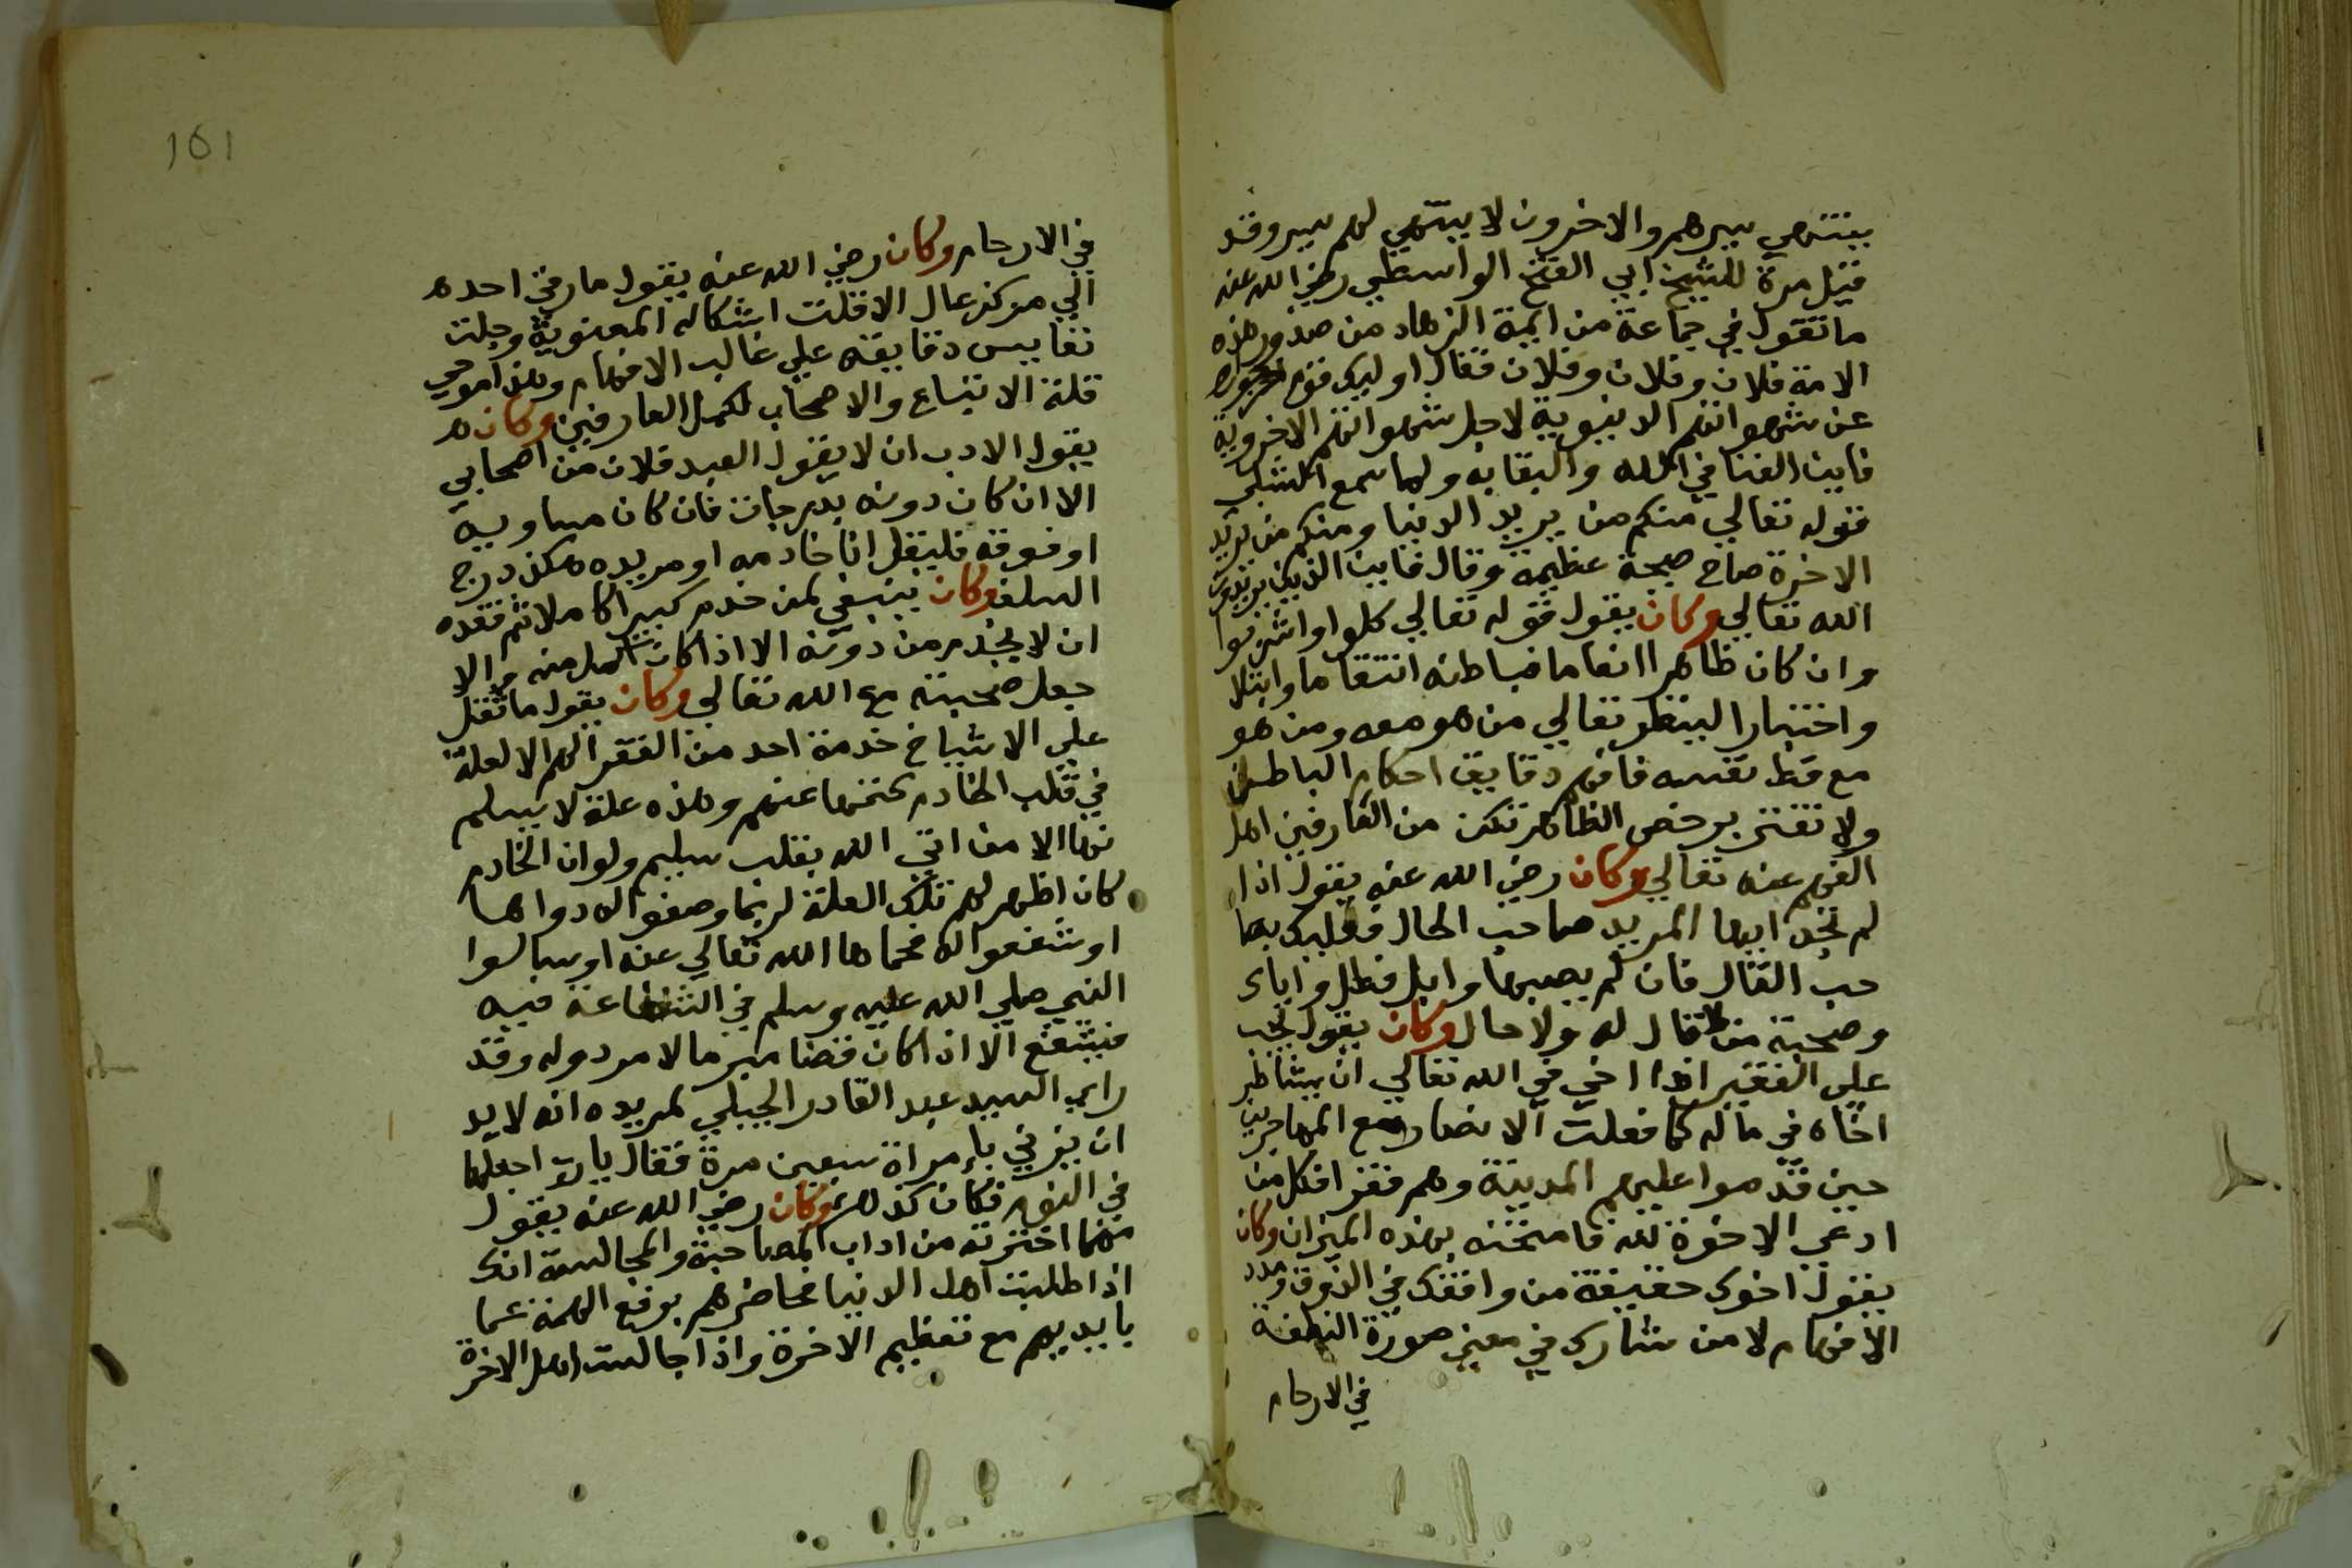 ينتهي سيرهم والاخرون لا ينتهي لهم سير وقد
قيل مرة للشيخ ابي الفتح الواسطي رضي الله عنه
ما تقول في جماعة من ايمة الزهاد من صدور هذه
الامة فلان وفلان وفلان فقال اوليك قوم
عن شهواتهم الدنيوية لاجل شهواتهم الاخروية
فاين الفنا في الله والبقا به ولما سمع الشبلي
قوله تعالي منكم من يريد الدنيا ومنكم من يريد
الاخرة صاح صيحة عظيمة وقال فاين الذين يريدون
الله تعالي وكان يقول قوله تعالي كلوا واشربوا
وان كان ظاهرا انعاما فباطنه انتقاما وابتلا
واختبارا لينظر تعالي من هو معه ومن هو
مع حظ نفسه فافهم دقايق احكام الباطن
ولا تغتر برخص الظاهر تكن من العارفين اهل
الفهم عنه تعالي وكان رضي الله عنه يقول اذا
لم تجد ايها المريد صاحب الحال فعليك بصا
حب القال فان لم يصبها وابل فطل واياك
وصحبة من لا قال له ولا حال وكان يقول يجب
علي الفقير اذا اخي في الله تعالي ان يشاطر
اخاه في ماله كما فعلت الانصار مع المهاجرين
حين قدموا عليهم المدينة وهم فقرا فكل من
ادعي الاخوة لله فامتحنه بهذه الميزان وكان
يقول اخوك حقيقة من وافقك في الذوق و
الافهام لا من شارك في معني صورة النطفة
في الارحام
161
في الارحام وكان رضي الله عنه يقول ما رقي احد ه
الي مركز عال الا قلت اشكاله المعنوية وجلت
نفايس دقايقه علي غالب الافهام ومن
قلة الاتباع والاصحاب لكمل العارفين وكان ه
يقول الادب ان لا يقول العبد فلان من اصحابي
الا ان كان دونه بدرجات فان كان مساويه
او فوقه فليقل انا خادمه او مريده هكذ درج
السلف وكان ينبغي لمن خدم كبيرا كاملا ثم فقده
ان لا يخدم من دونه الا اذا كان اكمل منه والا
جعل صحبته مع الله تعالي وكان يقول ما ثقل
علي الاشياخ خدمة احد من الفقرا لهم الا لعلة
في قلب الخادم كتمها عنهم وهذه علة لا يسلم
نها الا من اتي الله بقلب سليم ولو ان الخادم
كان اظهر لهم تلك العلة لربما وصفوا له دواها
او شفعوا له فحماها الله تعالي عنه او سالوا
النبي صلي الله عليه وسلم في الشفاعة فيه
فيشفع الا ان كان قضا مبرما لا مرد وله وقد
راي السيد عبد القادر الجيلي لمريده انه لا بد
ان يزني بامراة سبعين مرة فقال يا رب اجعلها
في النوم فكان كذلك وكان رضي الله عنه يقول
مما اخترته من اداب المصاحبة والمجالسة انك
اذا طلبت اهل الدنيا فحاضرهم برفع الهمة عما
بايديهم مع تعظيم الاخرة واذا جالست اهل الاخرة